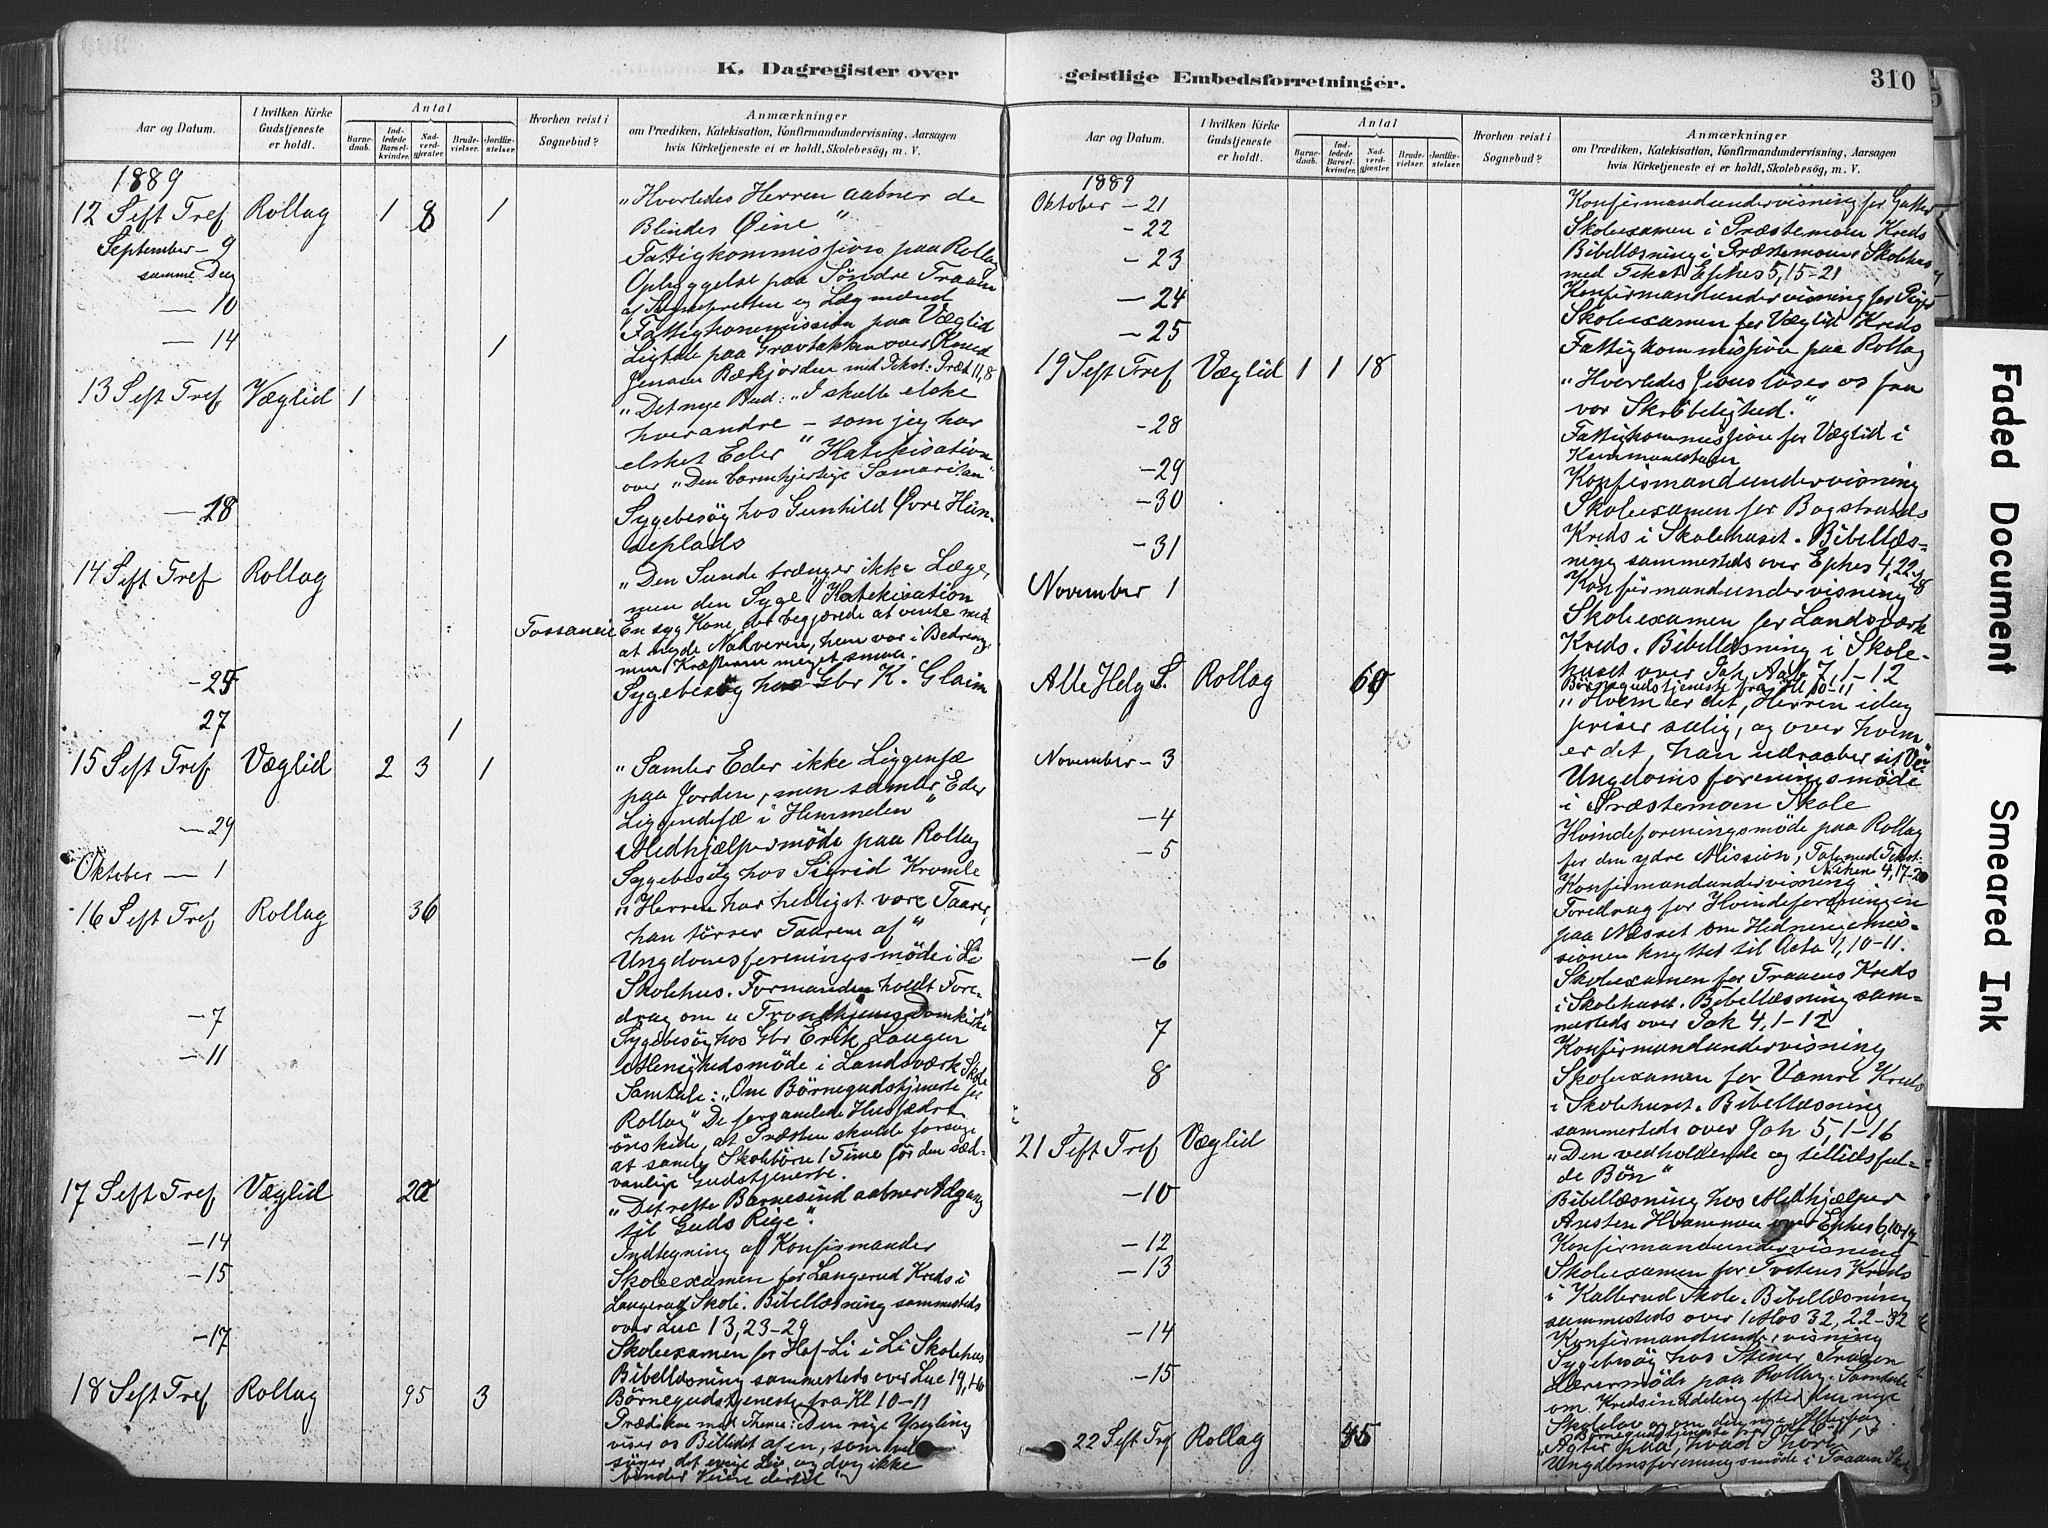 K. Dagregister over
Aar og Datum.
I hvilken Kirke
Gudstjeneste
er holdt.
Antal
Barne-
daab.
Ind-
ledede
Barsel-
kvinder.
Nad-
verd-
gjæster.
Brude-
vielser.
Jordfæ-
stelser.
Hvorhen reist i
Sognebud?
Anmærkninger
om Prædiken, Katekisation, Konfirmandundervisning, Aarsagen
hvis Kirketjeneste ei er holdt, Skolebesög, m. V.
1889
12 S eft Tref Rollag 1 8 1 "Hvorledes Herren aabner de
Blindes Øine"
September - 9 Fattigkommission paa Rollag
samme Dag Opbyggelse paa Søndre Traaen
af Sognepresten og Lægmænd
— 10 Fattigkommission paa Væglid
— 14 1 Ligtale paa Gravbakken over Knud
Jensen Bækjorden med Tekst: Præd 11,8
13 S eft Tref Væglid 1 "Det nye Bud: "I skulle elske
hverandre — som jeg har
elsket Eder" Katekisation
over "Den barmhjertige Samaritan"
— 18 Sygebesøg hos Gunhild Øvre Hun-
seplads
14 S eft Tref Rollag "Den Sunde trænger ikke Læge,
men den Syge" Katekisation
En syg Kone, der begjærede at vente med
at nyde Nadveren, hun var i Bedring,
men Kræfterne meget smaa.
— 25 Sygebesøg hos Gbr K. Glaim
27 1
15 S eft Tref Væglid 2 3 1 "Samler Eder ikke Liggenfæ
paa Jorden, men samler Eder
Liggendefæ i Himmelen"
— 29 Medhjælpermøde paa Rollag
Oktober — 1 Sygebesøg hos Sigrid Kromle
16 S eft Tref Rollag 36 "Herren har helliget vore Taarer,
han tørrer Taaren af"
Ungdomsforeningsmøde i Li
Skolehus. Formanden holdt Fore-
drag om "Trondhjems Domkirke"
— 7 Sygebesøg hos Gbr Erik Laugen
— 11 Menighedsmøde i Landsværk Skole
Samtale: "Om Børnegudstjeneste for
Rollag" De forsamlede Husfædre
ønskede, at Præsten skulde forsøge
at samle Skolebørn 1 Time før den sæd-
vanlige Gudstjeneste.
17 S eft Tref Væglid "Det rette Barnesind aabner Adgang
til Guds Rige".
— 14 Indtegning af Konfirmander
— 15 Skoleexamen for Langerud Kreds i
Langerud Skole. Bibellæsning sammesteds
over Luc 13, 23-29
— 17 Skoleexamen for Hof-Li i Li Skolehus
Bibellæsning sammesteds over Luc 19, 1-6
18 S eft Tref Rollag 95 3 Børnegudstjeneste fra Kl 10-11
Prædiken med Thema: Den rige Yngling
viser os Billedet af en, som vel
søger det evige Liv og dog ikke
finder Veien dertil"
geistlige Embedsforretninger.
310
Aar og Datum.
I hvilken Kirke
Gudstjeneste
er holdt.
Antal
Barne-
daab.
Ind-
ledede
Barsel-
kvinder.
Nad-
verd-
gjæster.
Brude-
vielser.
Jordfæ-
stelser.
Hvorhen reist i
Sognebud?
Anmærkninger
om Prædiken, Katekisation, Konfirmandundervisning, Aarsagen
hvis Kirketjeneste ei er holdt, Skolebesög, m. V.
1889
Oktober — 21 Konfirmandundervisning for Gutter
— 22 Skoleexamen i Præstemoen Kreds
— 23 Bibellæsning i Præstemoens Skolehus
med Tekst Ephes 5, 15-21
— 24 Konfirmandundervisning for Piger
— 25 Skoleexamen for Væglid Kreds
Fattigkommission paa Rollag
19 S eft Tref Væglid 1 1 18 "Hvorledes Jesus løser os fra
vor Skrøbelighed."
— 28 Fattigkommission for Væglid i
— 29 Konfirmandundervisning
— 30 Skoleexamen for Bogstrands
Kreds i Skolehuset. Bibellæs-
ning sammesteds over Ephes 4, 22-28
— 31 Konfirmandundervisning
November 1 Skoleexamen for Landsværk
Kreds. Bibellæsning i Skole-
huset over Joh Aab 7, 1-12
Alle Helg S. Rollag Børnegudstjeneste fra Kl 10-11
"Hvem er det, Herren idag
priser salig, og over hvem
er det, han udraaber sit Ve"
November — 3 Ungdomsforeningsmøde
i Præstemoen Skole
— 4 Kvindeforeningsmøde paa Rollag
for den ydre Mission, Tale med Tekst:
4, 17-20
— 5 Konfirmandundervisning
Foredrag for Kvindeforeningen
paa Næsset om Hedningemis-
sionen knyttet til Acta 1, 10-11.
— 6 Skoleexamen for Traaens Kreds
i Skolehuset. Bibellæsning sam-
mesteds over Jak 4, 1-12
7 Konfirmandundervisning
8 Skoleexamen for Vamre Kreds
i Skolehuset. Bibellæsning
sammesteds over Joh 5, 1-16
21 S eft Tref Væglid "Den vedholdende og tillidsful-
de Bøn"
— 10 Bibellæsning hos Medhjælper
Ansten Hvammen over Ephes 6, 10-19
— 12 Konfirmandundervisning
— 13 Skoleexamen for Tvetens Kreds
i Kallerud Skole. Bibellæsning
sammesteds over 1 Mos 32, 22-32
— 14 Konfirmandundervisning
Sygebesøg hos Stener Traaen
— 15 Lærermøde paa Rollag. Samtale
om Kredsinddeling efter den nye
Skolelov og om den nye Alterbog.
22 S eft Tref Rollag 45 Børnegudstjeneste
"Agter paa, hvad I høre"
Ungdomsforeningsmøde i Traaen Skole
Faded Document
Smeared Ink